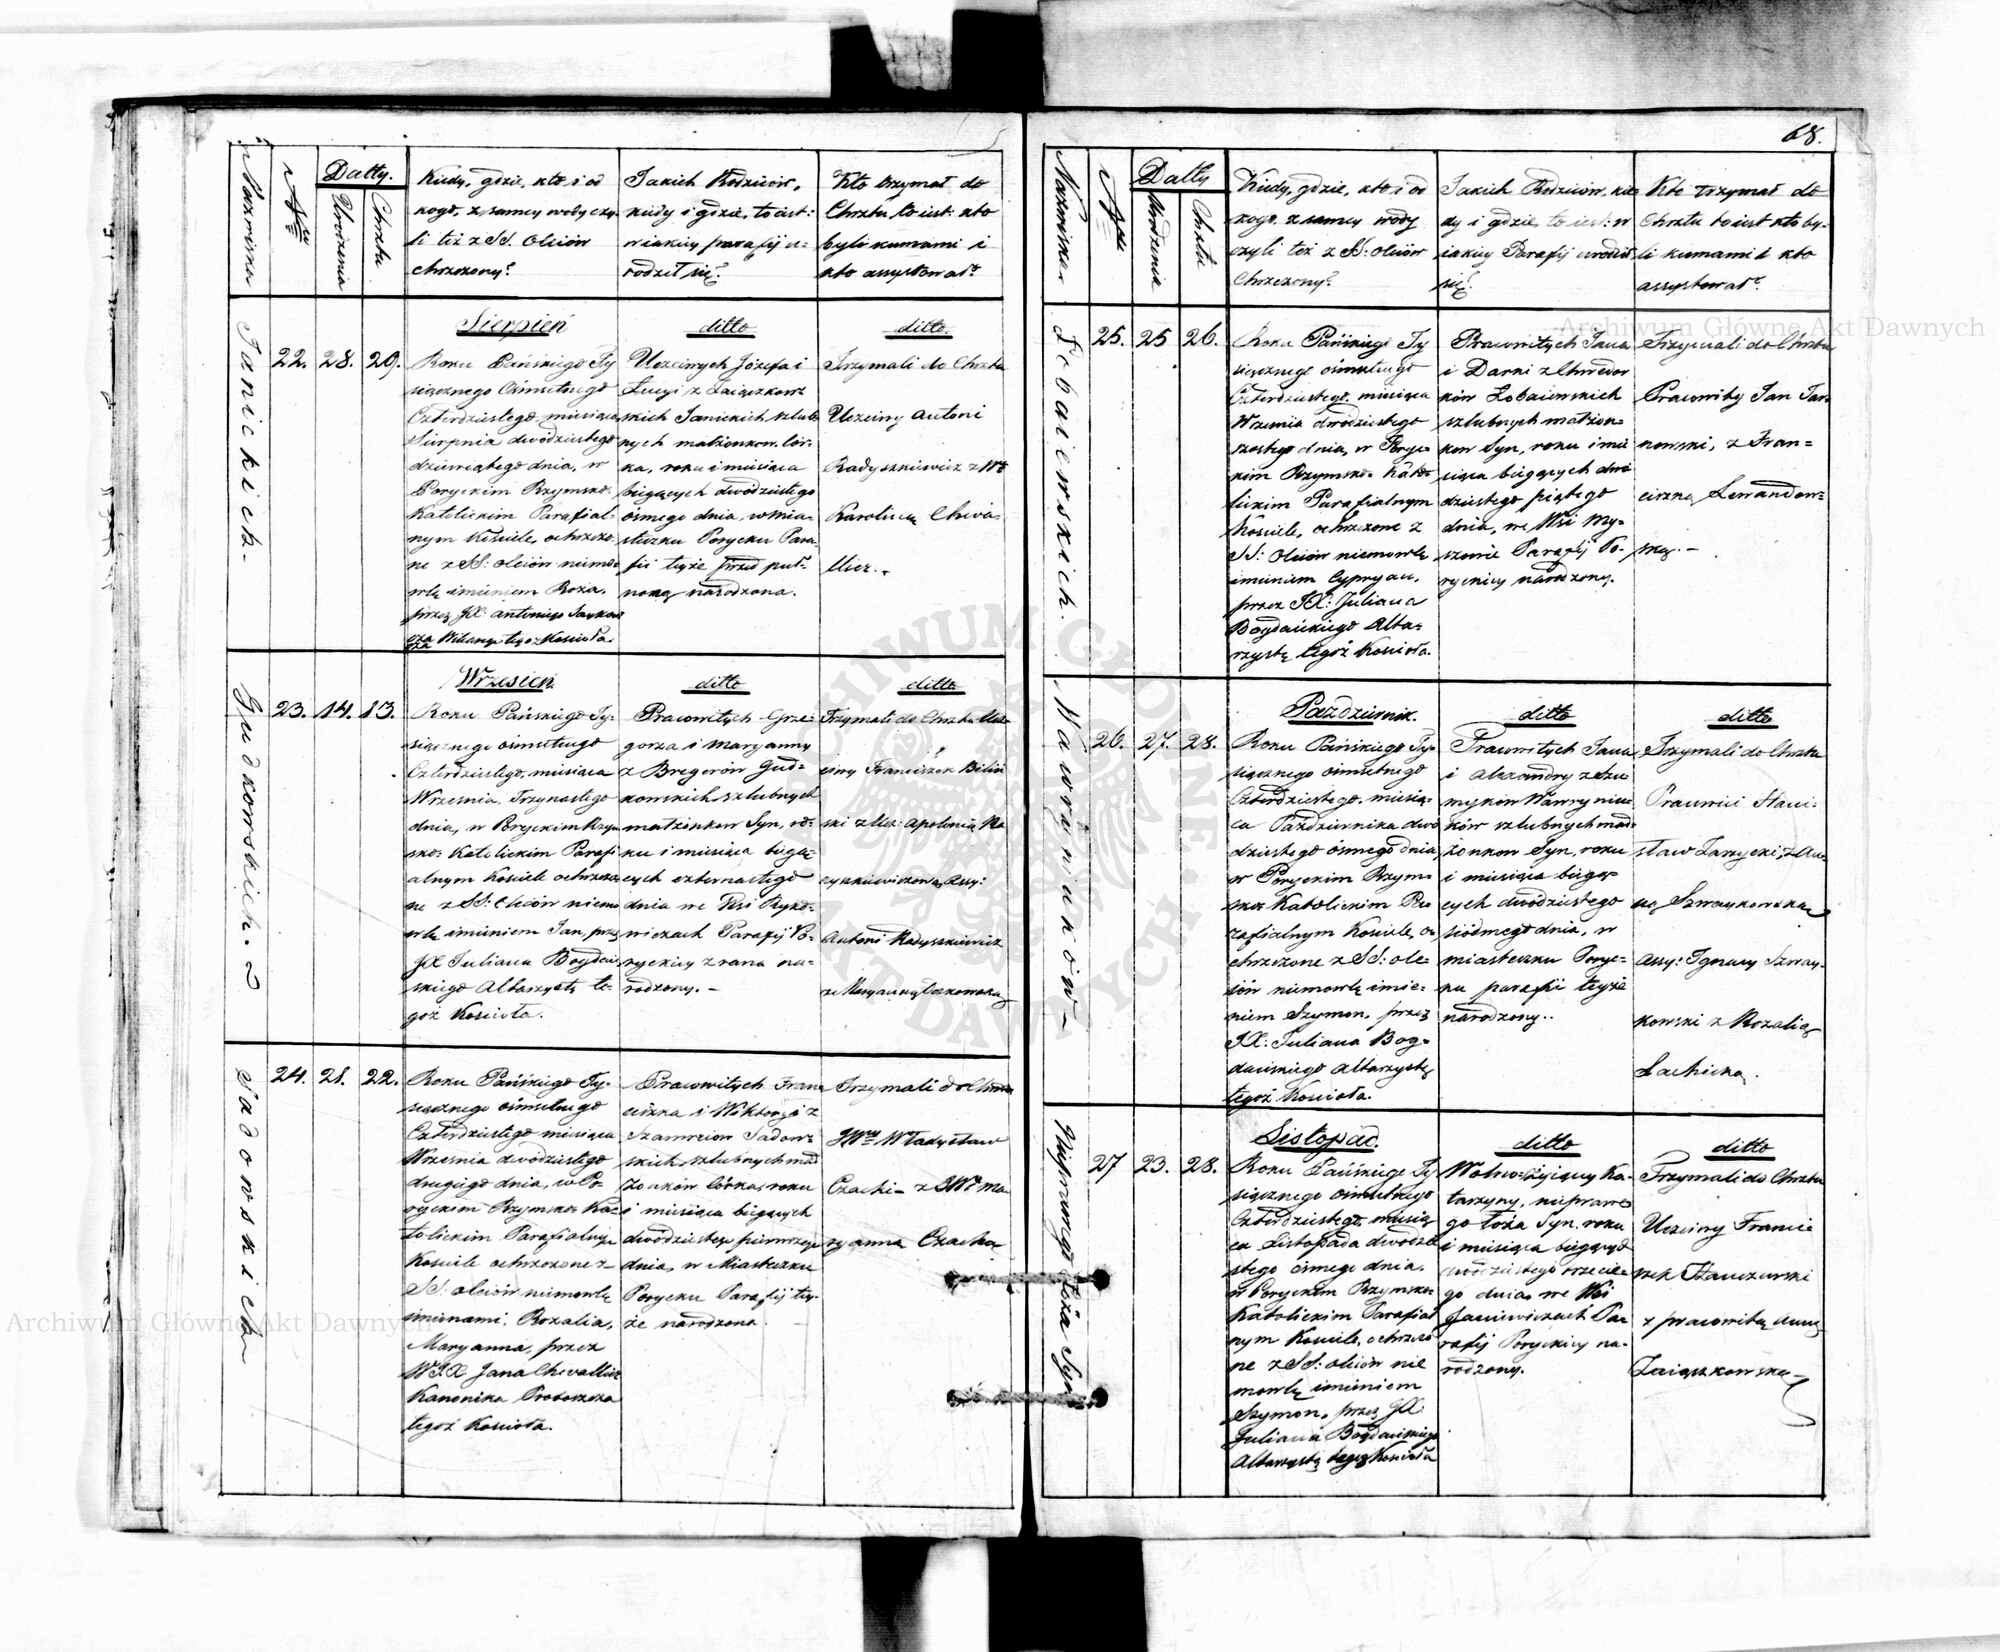 Nazwiska
Nru
Datty.
Urodzenia
Chrztu
Kiedy, gdzie, kto i od
kogo, z samey wody czy-
li też z SS. Oleiów
chrzczony?
Jakich Rodziców,
kiedy i gdzie, to iest:
w iakiey parafij u-
rodził się?
Kto trzymał do
Chrztu, to iest: kto
byli kumami i
kto assystował?
Janickich
22. 28. 29.
Sierpień
Roku Pańskiego Ty
siącznego Ośmsetnego
Czterdziestego miesiąca
Sierpnia dwódziestego
dziewiątego dnia, w
Poryckim Rzymsko
Katolickim Parafial-
nym Kościele, ochrzczo
ne z SS: oleiów niemo-
wlę imieniem Roza.
przez JX: Antoniego
Wikarego tegoż Kościoła.
ditto
Uczciwych Józefa i
Łucyi z Zaiączkow-
skich Janickich, szlub-
nych małżonków Cór-
ka, roku i miesiąca
bieżących dwódziestego
ósmego dnia, w Mia-
steczku Porycku Para-
fii teyże przed puł-
nocą narodzona.
ditto.
Trzymali do Chrztu
Uczciwy Antoni
Radyszkiewicz z
Karoliną Cheva-
llier.
Gudkowskich.
23. 14. 13.
Wrzesień
Roku Pańskiego Ty-
siącznego ośmsetnego
Czterdziestego, miesiąca
Wrzesnia Trzynastego
dnia, w Poryckim Rzym
sko: Katolickim Parafi
alnym Kościele ochrzczo
ne z SS: Oleiów niemo
wlę imieniem Jan, przez
JX Juliana Bogdań
skiego Altarzystę te-
goż Kościoła.
ditto
Pracowitych Grze-
gorza i Maryanny
z Bregerów Gud-
kowskich szlubnych
małżonkow Syn, ro-
ku i miesiąca bieżą-
cych czternastego
dnia we Wsi
Parafij Po-
ryckiey z rana na-
rodzony.-
ditto
Trzymali do Chrztu Ucz
ciwy Franciszek Biliń
ski z Ucz: Apolonią Ra
Assy:
Antoni Radyszkiewicz
z Maryanną
Sadowskich
24. 21. 22.
Roku Pańskiego Ty-
siącznego ośmsetnego
Czterdziestego miesiąca
Wrzesnia dwódziestego
drugiego dnia, w Po-
ryckim Rzymsko Ka-
tolickim Parafialnym
Kościele ochrzczone z
SS: oleiów niemowlę
imionami: Rozalia,
Maryanna, przez
WJX Jana Chevallier
Kanonika Proboszcza
tegoż Kościoła.
Pracowitych Fran
ciszka i Wiktoryi z
Sadow-
skich szlubnych mał
żonków Córka, roku
i miesiąca bieżących
dwódziestego pierwszego
dnia, w Miasteczku
Porycku Parafij tey-
że narodzona.
Trzymali do Chrztu
JWny Władysław
Czacki - z JWną Ma
ryanną Czacką
68.
Nazwiska
Nru
Datty
Urodzenia
Chrztu
Kiedy, gdzie, kto i od
kogo, z samey wody
czyli też z SS: oleiów
Chrzczony?
Jakich Rodziców, kie
dy i gdzie, to iest: w
iakiey Parafij urodził
się?
Kto trzymał do
Chrztu to iest kto by-
li kumami i kto
assystował?
25. 25 26.
Roku Pańskiego Ty
siącznego ośmsetnego
Czterdziestego, miesiąca
Wrzesnia dwódziestego
szostego dnia, w Poryc-
kim Rzymsko Kato-
lickim Parafialnym
Kościele, ochrzczone z
SS: Oleiów niemowlę
imieniem Cypryan,
przez JX: Juliana
Bogdańskiego Alta-
rzystę tegoż Kościoła.
Pracowitych Jana
i Darki z Chwedor
ków
szlubnych małżon-
kow Syn, roku i mie
siąca bieżących dwó
dziestego piątego
dnia, we Wsi My-
szowie Parafij Po-
ryckiey narodzony.
Trzymali do Chrztu
Pracowity Jan Tar
nowski, z Fran-
ciszką Lewandow-
ską.-
Wawryniuków-
26. 27. 28.
Październik.
Roku Pańskiego Ty-
siącznego ośmsetnego
Czterdziestego, miesią-
ca Października dwó
dziestego ósmego dnia
w Poryckim Rzym-
sko Katolickim Pa
rafialnym Kościele, o
chrzczone z SS: ole-
iów niemowlę imie-
niem Szymon, przez
JX: Juliana Bog-
dańskiego Altarzystę
tegoż Kościoła.
ditto
Pracowitych Jana
i Alexandry z
Wawryniu
ków szlubnych mał-
żonkow Syn, roku
i miesiąca bieżą-
cych dwódziestego
siódmego dnia, w
miasteczku Poryc-
ku parafii teyże
narodzony..
ditto
Trzymali do Chrztu
Pracowici Stani-
sław Zarzycki, z An
ną Szwaykowską
Assy: Ignacy Szway-
kowski z Rozalią
Lachicką.
Nieprawego Łoża Syn
27 23. 28.
Listopad.
Roku Pańskiego Ty
siącznego ośmsetnego
Czterdziestego, miesią
ca Listopada dwódzie
stego ósmego dnia.
w Poryckim Rzymsko
Katolickim Parafial
nym Kościele, ochrzczo
ne z SS: oleiów nie
mowlę imieniem
Szymon, przez JX:
Juliana Bogdańskiego
Altarzystę tegoż Kościoła
ditto
Wolno-żyiącey Ka-
tarzyny, niepraw e
go łoża Syn. roku
i miesiąca bieżących
dwódziestego trzecie-
go dnia we Wsi
Janiewiczach Pa-
rafij Poryckiey na-
rodzony.
ditto
Trzymali do Chrztu
Uczciwy Franci
szek
z pracowitą Anną
Zaiączkowską-
Archiwum Główne Akt Dawnych
Archiwum Główne Akt Dawnych
ARCHIWUM GŁÓWNE AKT DAWNYCH